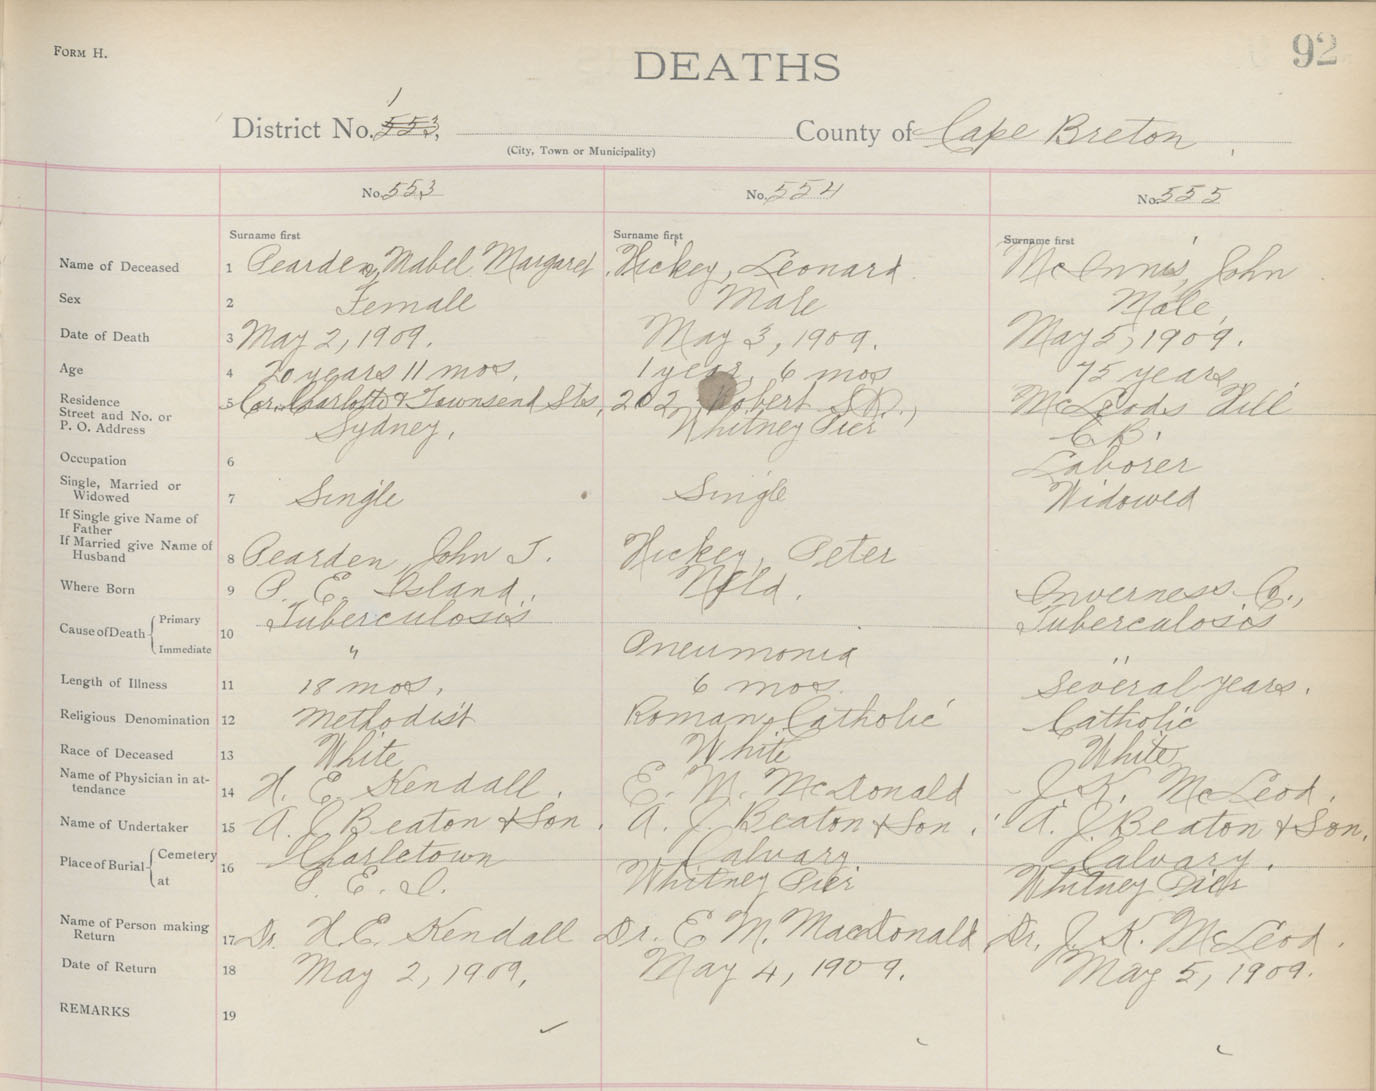 Form H.
DEATHS
92
1
District No. 553,
County of Cape Breton,
(City, Town or Municipality)
No. 553
No. 554
No. 555
Surname first
Surname first
Surname first
Name of Deceased 1 Pearden, Mabel Margaret Hickey, Leonard McInnis, John
Sex 2 Female Male Male,
Date of Death 3 May 2, 1909. May 3, 1909. May 5, 1909.
Age 4 20 years 11 mos. 1 year, 6 mos 75 years
Residence 5 Cor. Charlotte & Townsend Sts, 202 Robert St., McLeods Hill
Street and No. or
P. O. Address Sydney. Whitney Pier C. B.
Occupation 6 Laborer
Single, Married or
Widowed 7 Single Single Widowed
If Single give Name of
Father
If Married give Name of
Husband 8 Pearden John T. Hickey, Peter
Where Born 9 P. E. Island. Nfld. Inverness Co.,
Cause of Death Primary 10 Tuberculosis Tuberculosis
Immediate " Pneumonia "
Length of Illness 11 18 mos. 6 mos. Several years.
Religious Denomination 12 Methodist Roman Catholic Catholic
Race of Deceased 13 White White White
Name of Physician in at-
tendance 14 H. E. Kendall. E. M. McDonald J. K. McLeod.
Name of Undertaker 15 A. J. Beaton & Son. A. J. Beaton & Son. A. J. Beaton & Son.
Place of Burial Cemetery 16 Charletown Calvary. Calvary.
at P. E. I. Whitney Pier Whitney Pier
Name of Person making
Return 17 Dr. H. E. Kendall Dr. E. M. MacDonald Dr. J. K. McLeod.
Date of Return 18 May 2, 1909. May 4, 1909. May 5, 1909.
REMARKS 19